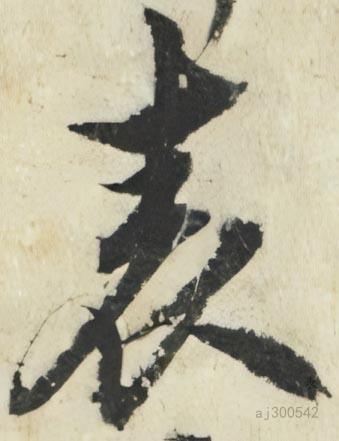 表
aj300542